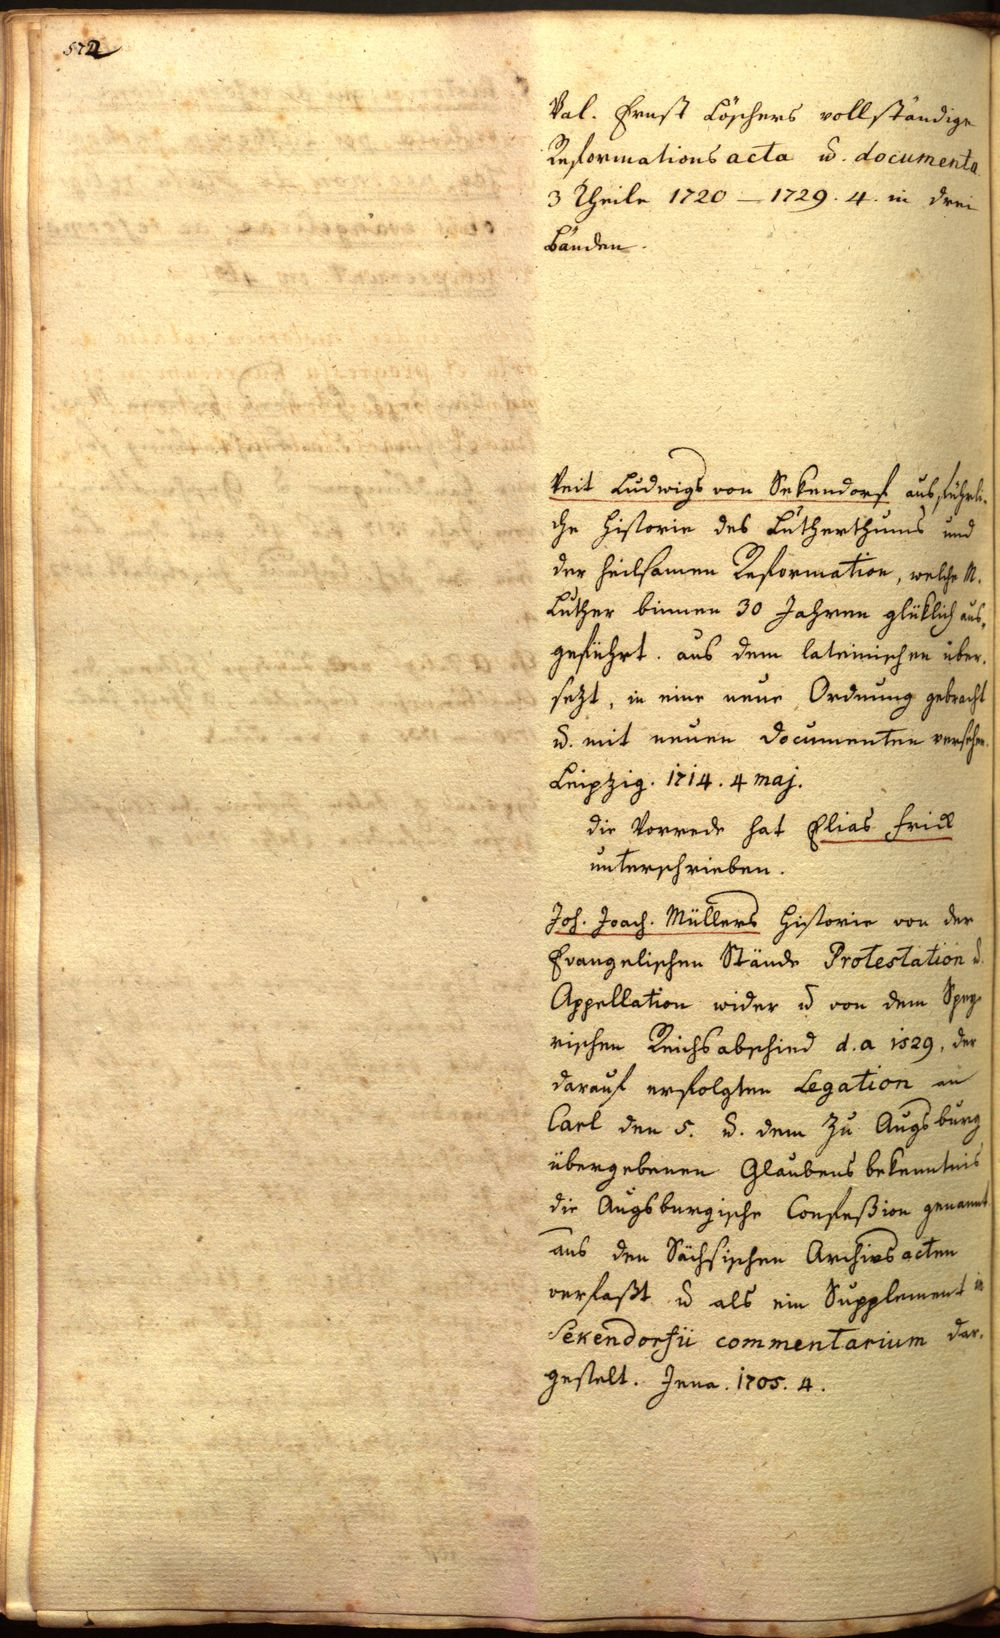 572
Val. Ernst Löschers vollständige
Reformations acta u. documenta
3 Theile 1720 — 1729. 4. in drei
Bänden.
Veit Ludwigs von Sekendorf ausführli-
che Historie des Lutherthums und
der heilsamen Reformation, welche M.
Luther binnen 30 Jahren glüklich aus-
geführt. aus dem lateinischen über-
sezt, in eine neue Ordnung gebracht
u. mit neuen Documenten versehen.
Leipzig. 1714. 4 maj.
die Vorrede hat Elias Frick
unterschrieben.
Joh. Joach. Müllers Historie von der
Evangelischen Stände Protestation u.
Appellation wider u von dem Spey-
rischen Reichsabschied d. a 1529, der
darauf erfolgten Legation an
Carl den 5. u. dem zu Augsburg
übergebenen Glaubensbekenntnis
die Augsburgische Confeßion genannt
aus den Sächsischen Archivsacten
verfaßt u als ein Supplement in
Sekendorfii commentarium dar-
gestelt. Jena. 1705. 4.